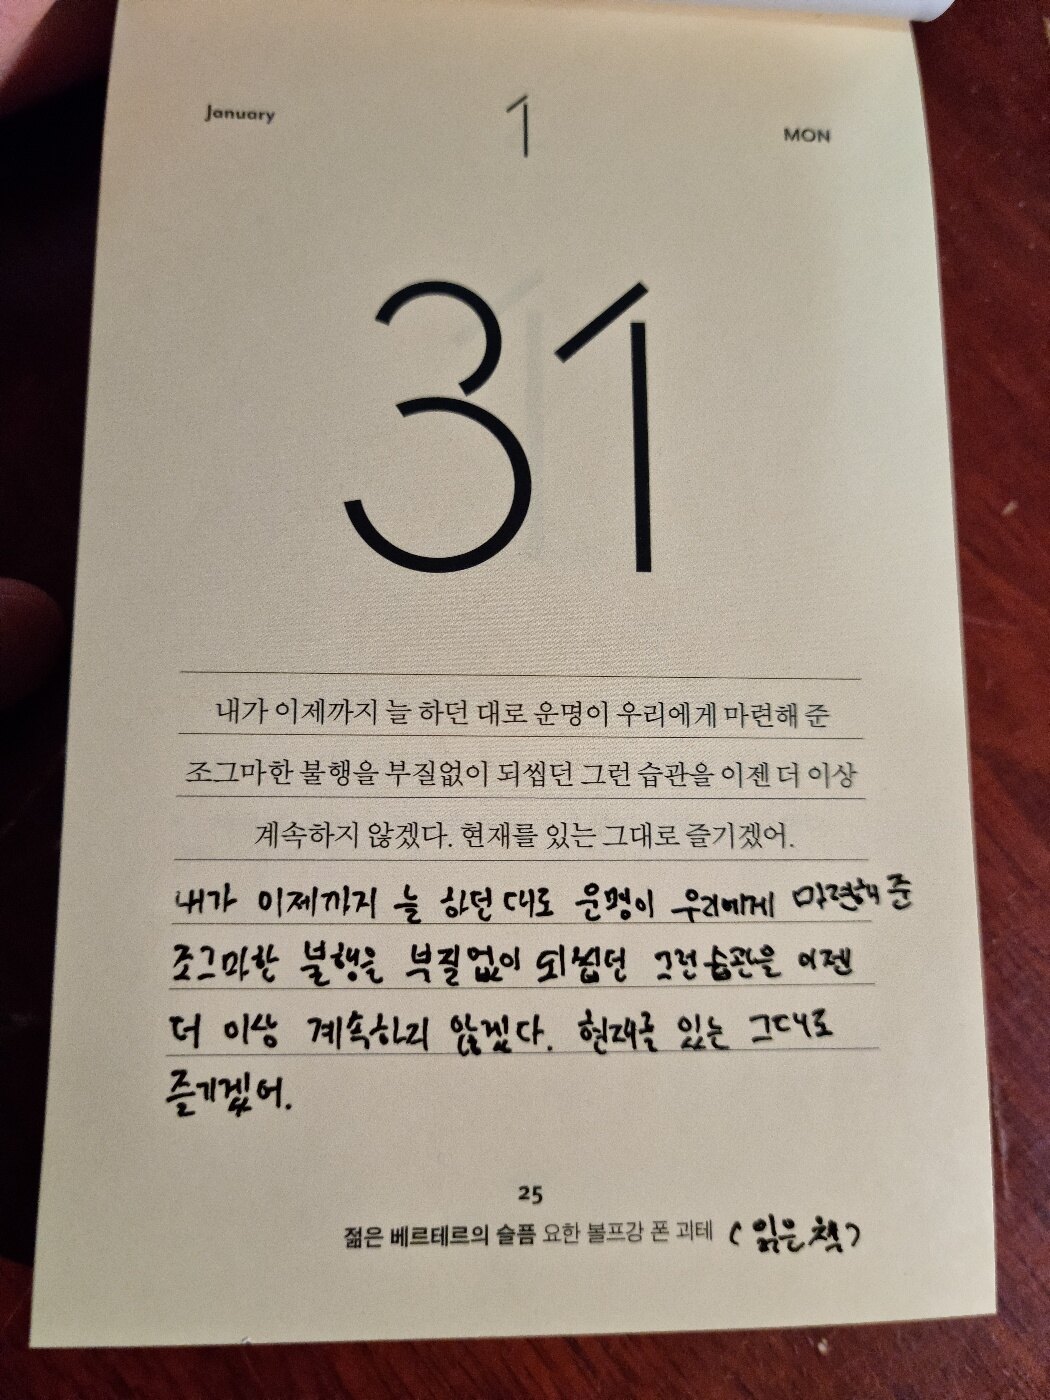 January 1 MON
31
내가 이제까지 늘 하던 대로 운명이 우리에게 마련해 준
조그마한 불행을 부질없이 되씹던 그런 습관을 이젠 더 이상
계속하지 않겠다. 현재를 있는 그대로 즐기겠어.
내가 이제까지 늘 하던 대로 운명이 우리에게 마련해 준
조그마한 불행을 부질없이 되씹던 그런 습관을 이젠
더 이상 계속하지 않겠다. 현재를 있는 그대로
즐기겠어.
25
젊은 베르테르의 슬픔 요한 볼프강 폰 괴테 (읽은 책)